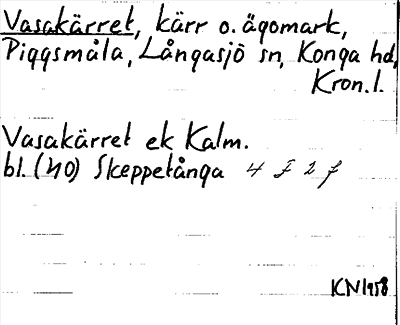 Vasakärret, kärr o. ägomark,
Piggsmåla, Långasjö sn, Konga hd,
Kron. l.
Vasakärret ek Kalm.
bl. (NO) Skeppetånga 4 F 2 f
KN 1958